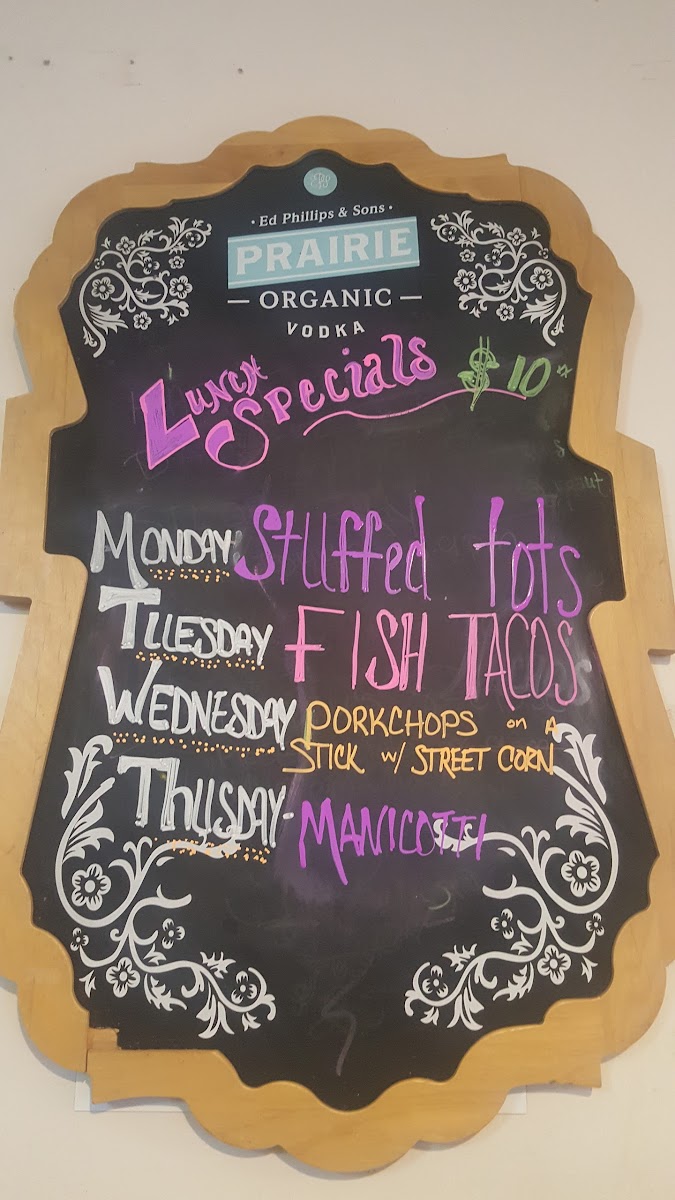 · Ed Phillips & Sons ·
PRAIRIE
— ORGANIC —
VODKA
Lunch Specials $10
Monday Stuffed tots
Tuesday Fish Tacos
Wednesday Porkchops on a
Stick w/ Street Corn
Thusday- Manicotti